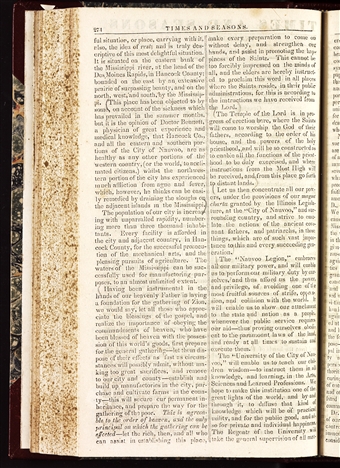 274 TIMES AND SEASONS.
ful situation, or place, carrying with it,
also, the idea of rest; and is truly des-
criptive of this most delightful situation.
It is situated on the eastern bank of
the Mississippi river, at the head of the
Des Moines Rapids, in Hancock County;
bounded on the east by an extensive
prairie of surpassing beauty, and on the
north, west, and south, by the Mississip-
pi. This place has been objected to by
some, on account of the sickness which
has prevailed in the summer months,
but it is the opinion of Doctor Bennett,
a physician of great experience and
medical knowledge, that Hancock Co.,
and all the eastern and southern por-
tions of the City of Nauvoo, are as
healthy as any other portions of the
western country, (or the world, to accli-
mated citizens,) whilst the northwes-
tern portion of the city has experienced
much affliction from ague and fever,
which, however, he thinks can be easi-
ly remedied by draining the sloughs on
the adjacent islands in the Mississippi.
The population of our city is increas-
ing with unparalled rapidity, number-
ing more than three thousand inhabi-
tants. Every facility is afforded in
the city and adjacent country, in Han-
cock County, for the successful prosecu-
tion of the mechanical arts, and the
pleasing pursuits of agriculture. The
waters of the Mississippi can be suc-
cessfully used for manufacturing pur-
poses, to an almost unlimited extent.
Having been instrumental in the
hands of our heavenly Father in laying
a foundation for the gathering of Zion,
we would say, let all those who appre-
ciate the blessings of the gospel, and
realize the importance of obeying the
commandments of heaven, who have
been blessed of heaven with the posses-
sion of this world's goods, first prepare
for the general gathering—let them dis-
pose of their effects as fast as circum-
stances will possibly admit, without ma-
king too great sacrifices, and remove
to our city and county—establish and
build up manufactories in the city, pur-
chase and cultivate farms in the coun-
ty—this will secure our permanent in-
heritance, and prepare the way for the
gathering of the poor. This is agreea-
ble to the order of heaven, and the only
principal on which the gathering can be
effected—let the rich, then, and all who
can assist in establishing this place,
make every preparation to come on
without delay, and strengthen our
hands, and assist in promoting the hap-
piness of the Saints. This cannot be
too forcibly impressed on the minds of
all, and the elders are hereby instruct-
ed to proclaim this word in all places
where the Saints reside, in their public
administrations, for this is according to
the instructions we have received from
the Lord.
The Temple of the Lord is in pro-
gress of erection here, where the Saints
will come to worship the God of their
fathers, according to the order of his
house, and the powers of the holy
priesthood, and will be so constructed as
to enable all the functions of the priest-
hood to be duly exercised, and where
instructions from the Most High will
be received, and from this place go forth
to distant lands.
Let us then concentrate all our pow-
ers, under the provisions of our magna
charta granted by the Illinois Legis-
lature, at the "City of Nauvoo," and sur-
rounding country, and strive to emu-
late the actions of the ancient cov-
enant fathers, and patriarchs, in those
things, which are of such vast impor-
tance to this and every succeeding ge-
neration.
The "Nauvoo Legion," embraces
all our military power, and will enable
us to perform our military duty by our-
selves, and thus afford us the power,
and privilege, of avoiding one of the
most fruitful sources of strife, oppres-
sion, and collision with the world. It
will enable us to show our attachment
to the state and nation as a people,
whenever the public service requires
our aid—thus proving ourselves obedi-
ent to the paramount laws of the land,
and ready at all times to sustain and
execute them.
The "University of the City of Nau-
voo," will enable us to teach our chil-
dren wisdom—to instruct them in all
knowledge, and learning, in the Arts,
Sciences and Learned Professions. We
hope to make this institution one of the
great lights of the world, and by and
through it, to diffuse that kind of
knowledge which will be of practical
utility, and for the public good, and al-
so for private and individual happiness.
The Regents of the University will
take the general supervision of all mat-